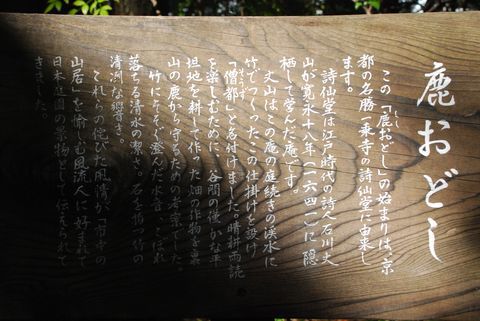 鹿おどし
この「鹿おどし」の始まりは、京
都の名勝一乗寺の詩仙堂に由来し
ます。
詩仙堂は江戸時代の詩人石川丈
山が寛永十八年（一六四一）に隠
栖して営んだ庵です。
丈山はこの庵の庭続きの渓水に
竹でつくったこの仕掛けを設け
「僧都」と名付けました。晴耕雨読
を楽しむために、谷間の僅かな平
坦地を耕して作った畑の作物を裏
山の鹿から守るための考案でした。
竹にそそぐ澄んだ水音、こぼれ
落ちる清水の潔さ。石を打つ竹の
清冽な響き。
これらの侘びた風情が、「市中の
山居」を愉しむ風流人に好まれて
日本庭園の景物として伝えられて
きました。